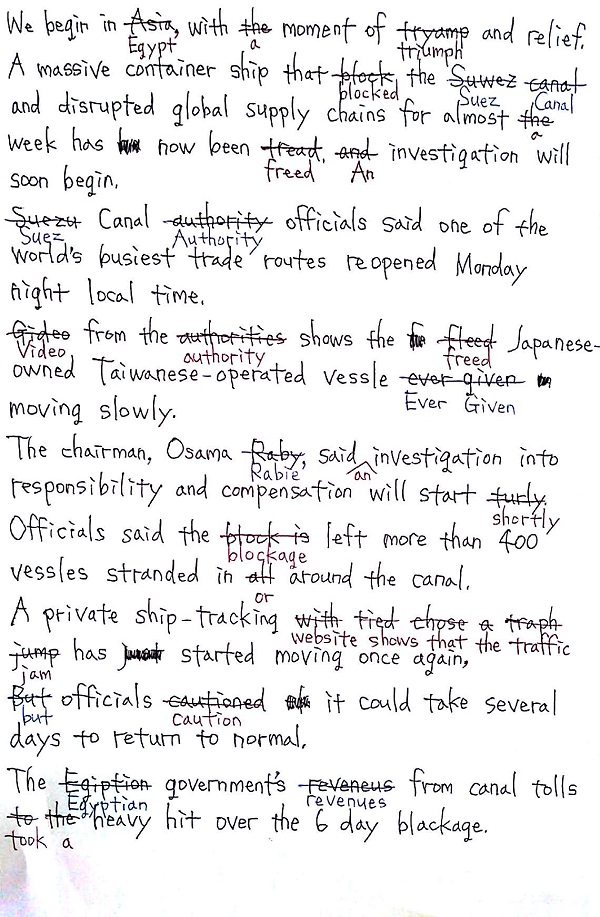 We begin in Asia, with the moment of tryamp and relief.
Egypt a triumph
A massive container ship that block, the Suwez canal
blocked Suez Canal
and disrupted global supply chains for almost the
a
week has now been tread, and investigation will
freed An
soon begin.
Suezu Canal authority officials said one of the
Suez Authority
world's busiest trade routes reopened Monday
night local time.
Gideo from the authorities shows the fleed Japanese-
Video authority freed
owned Taiwanese-operated vessle ever given
Ever Given
moving slowly.
The chairman, Osama Raby, said investigation into
Rabie an
responsibility and compensation will start turly.
shortly
Officials said the block is left more than 400
blockage
vessles stranded in all around the canal.
or
A private ship-tracking with tied chose a traph
website shows that the traffic
jump has started moving once again,
jam
But officials cautioned it could take several
but caution
days to return to normal.
The Egiption government's reveneus from canal tolls
Egyptian revenues
to the heavy hit over the 6 day blackage.
took a